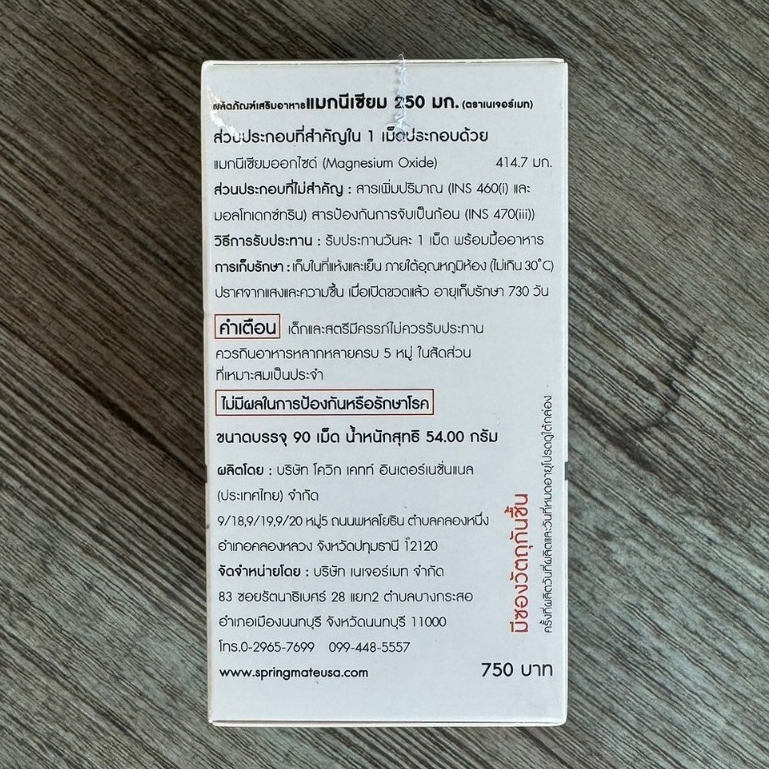 ผลิตภัณฑ์เสริมอาหารแมกนีเซียม 250 มก. (ตราเนเจอร์เมท)
ส่วนประกอบที่สำคัญใน 1 เม็ดประกอบด้วย
แมกนีเซียมออกไซด์ (Magnesium Oxide) 414.7 มก.
ส่วนประกอบที่ไม่สำคัญ : สารเพิ่มปริมาณ (INS 460(i) และ
มอลโทเดกซ์ทริน) สารป้องกันการจับเป็นก้อน (INS 470(iii))
วิธีการรับประทาน : รับประทานวันละ 1 เม็ด พร้อมมื้ออาหาร
การเก็บรักษา : เก็บในที่แห้งและเย็น ภายใต้อุณหภูมิห้อง (ไม่เกิน 30°C)
ปราศจากแสงและความชื้น เมื่อเปิดขวดแล้ว อายุเก็บรักษา 730 วัน
คำเตือน เด็กและสตรีมีครรภ์ไม่ควรรับประทาน
ควรกินอาหารหลากหลายครบ 5 หมู่ ในสัดส่วน
ที่เหมาะสมเป็นประจำ
ไม่มีผลในการป้องกันหรือรักษาโรค
ขนาดบรรจุ 90 เม็ด น้ำหนักสุทธิ 54.00 กรัม
ผลิตโดย : บริษัท โควิก เคทท์ อินเตอร์เนชั่นแนล
(ประเทศไทย) จำกัด
9/18,9/19,9/20 หมู่5 ถนนพหลโยธิน ตำบลคลองหนึ่ง
อำเภอคลองหลวง จังหวัดปทุมธานี 12120
จัดจำหน่ายโดย : บริษัท เนเจอร์เมท จำกัด
83 ซอยรัตนาธิเบศร์ 28 แยก2 ตำบลบางกระสอ
อำเภอเมืองนนทบุรี จังหวัดนนทบุรี 11000
โทร.0-2965-7699 099-448-5557
www.springmateusa.com
750 บาท
มีซองวัตถุกันชื้น
ครั้งที่ผลิตวันที่ผลิตและวันที่หมดอายุโปรดดูใต้กล่อง